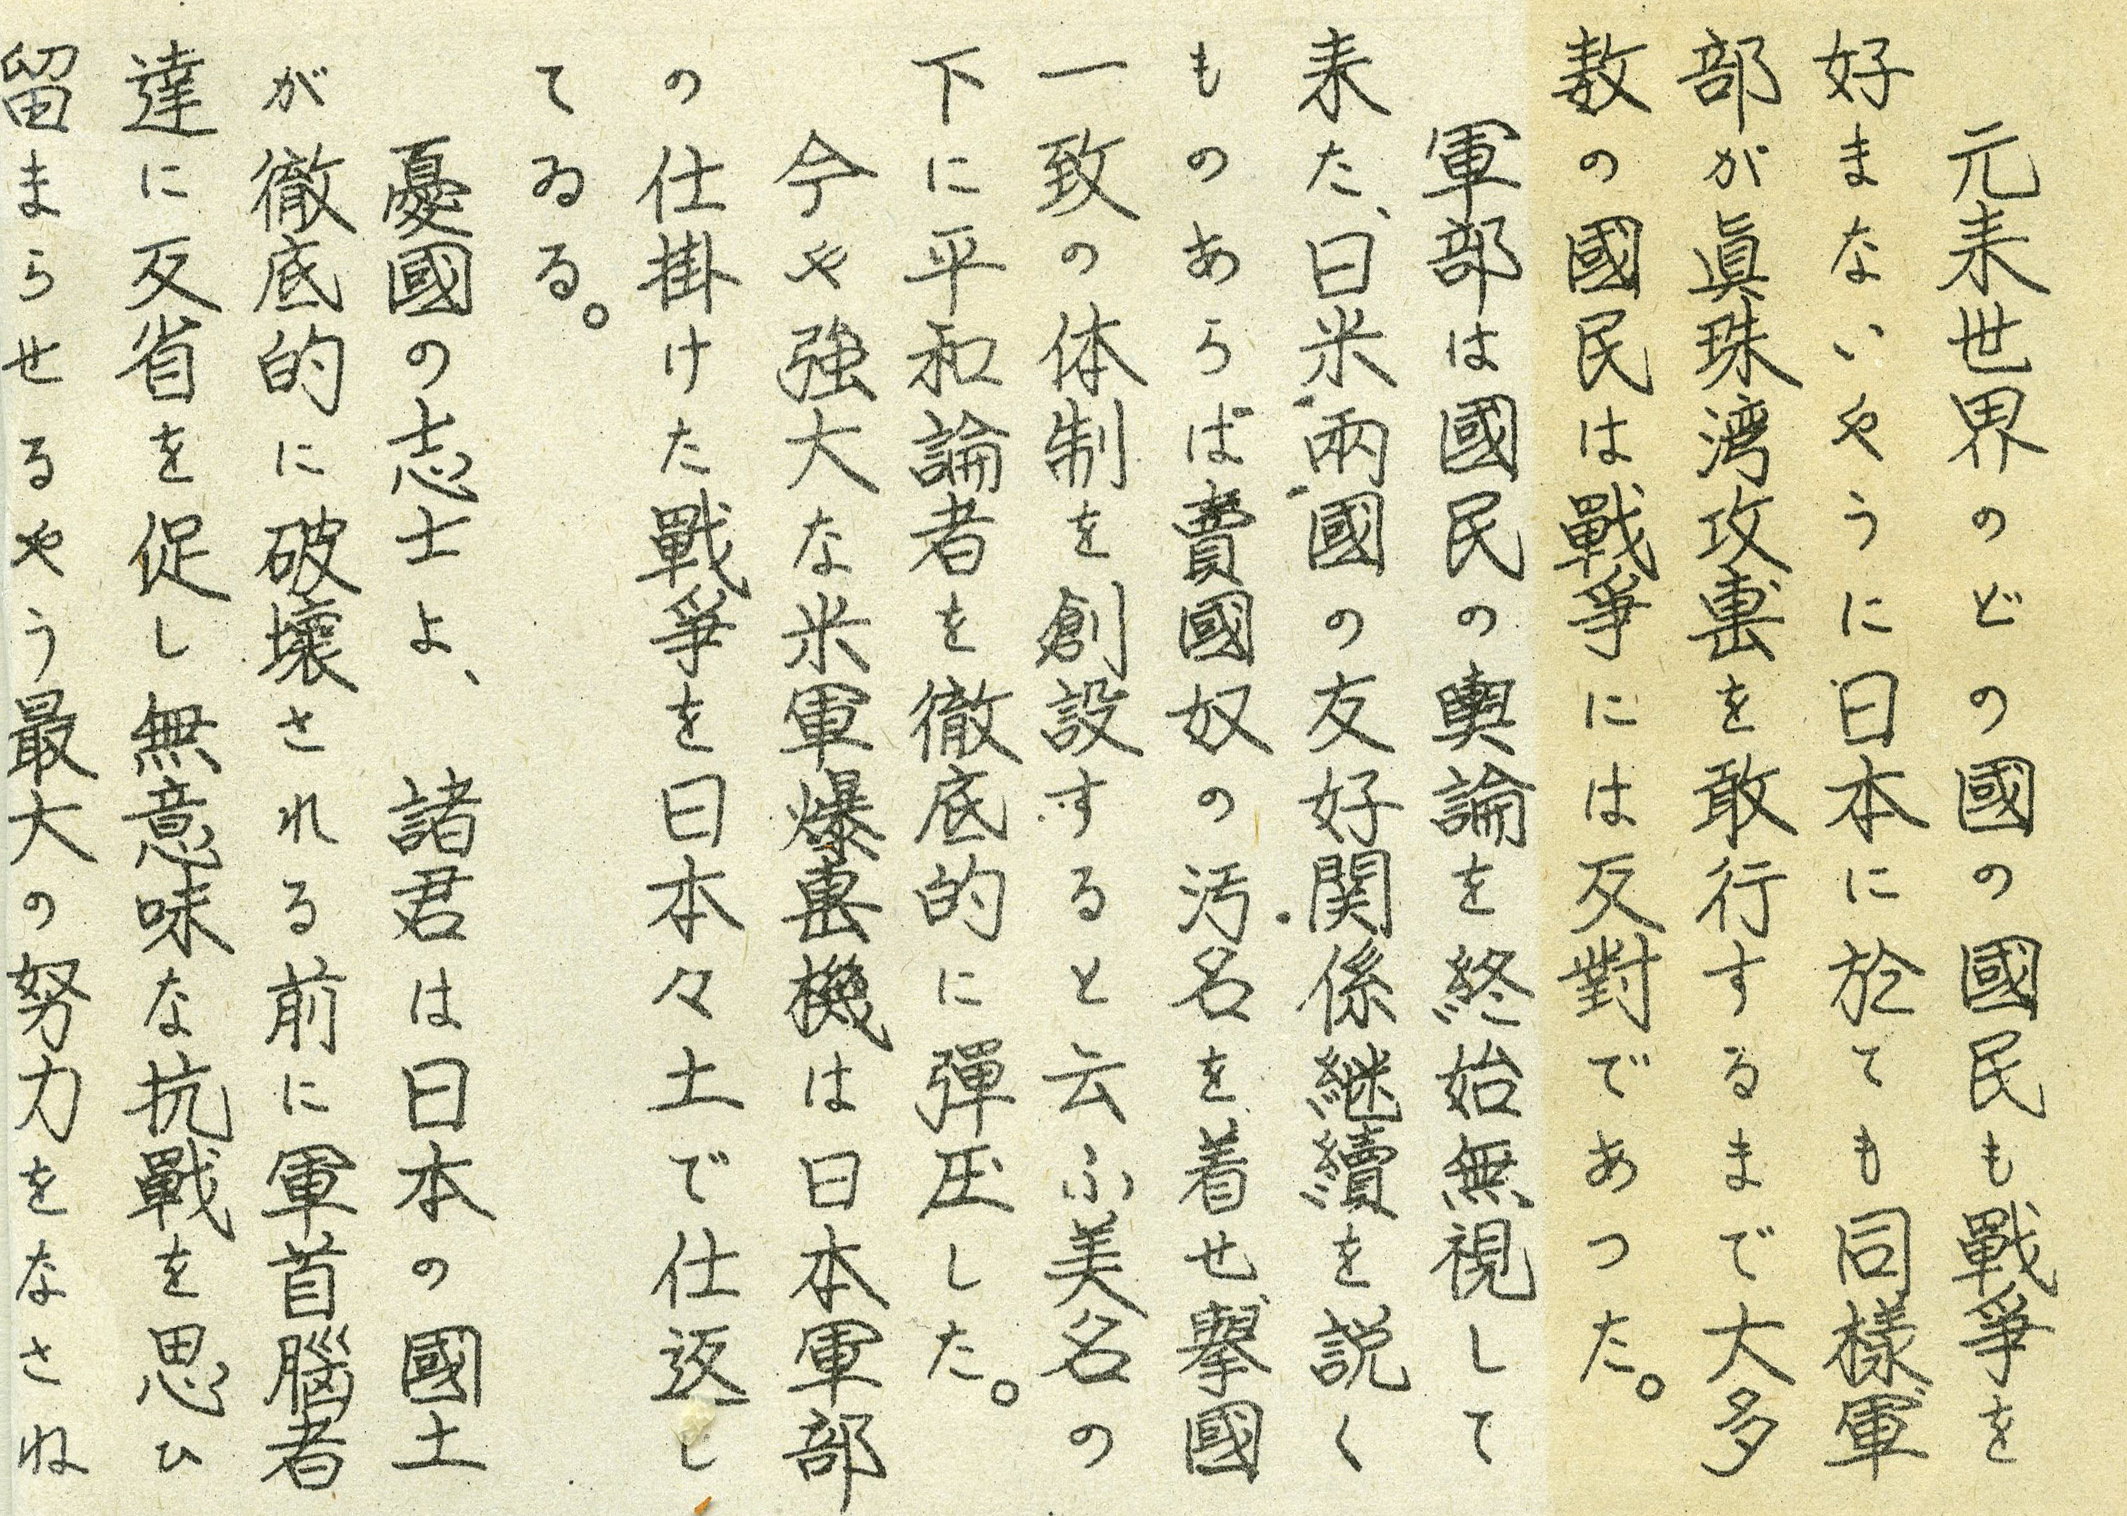 元来世界のどの國の國民も戰爭を
好まないやうに日本に於ても同様軍
部が眞珠湾攻撃を敢行するまで大多
数の國民は戰爭には反對であつた。
軍部は國民の輿論を終始無視して
来た、日米兩國の友好関係継續を説く
ものあらば賣國奴の汚名を着せ擧國
一致の体制を創設すると云ふ美名の
下に平和論者を徹底的に彈圧した。
今や強大な米軍爆撃機は日本軍部
の仕掛けた戰爭を日本々土で仕返し
てゐる。
憂國の志士よ、諸君は日本の國土
が徹底的に破壊される前に軍首腦者
達に反省を促し無意味な抗戰を思ひ
留まらせるやう最大の努力をなさね